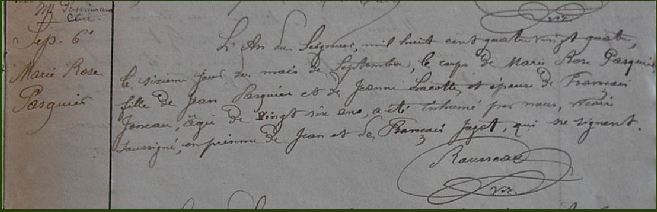 Sep. 6e
Marie Rose
Pasquier
L'An du Seigneur, mil huit cent quatre vingt quatre,
le sixième jour du mois de Septembre, le corps de Marie Rose Pasquier
fille de Jean Pasquier et de Jeanne et épouse de Francois
âgée de vingt six ans, a été inhumé par nous,
soussigné, en présence de Jean et de François Jagot, qui ne signent.
Rousseau